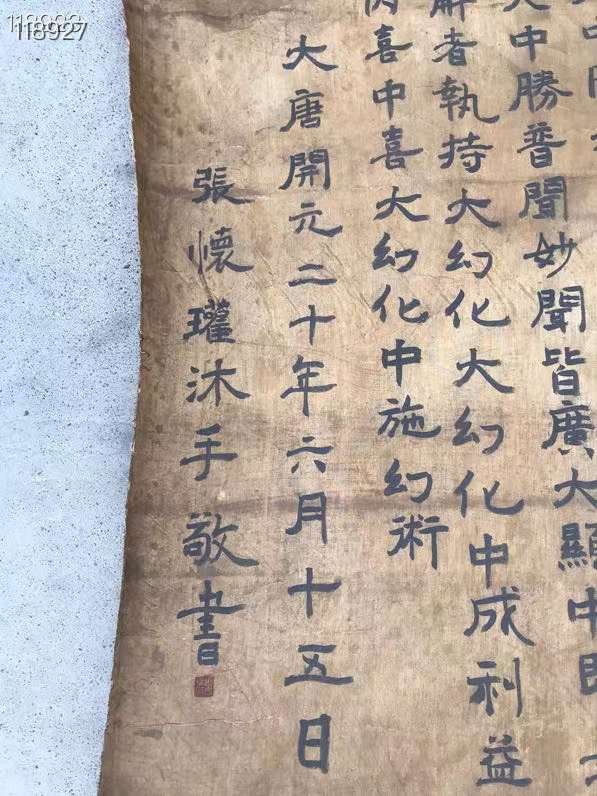 118927
中勝普聞妙聞皆廣大顯中
者執持大幻化大幻化中成利益
喜中喜大幻化中施幻術
大唐開元二十年六月十五日
張懷瓘沐手敬書